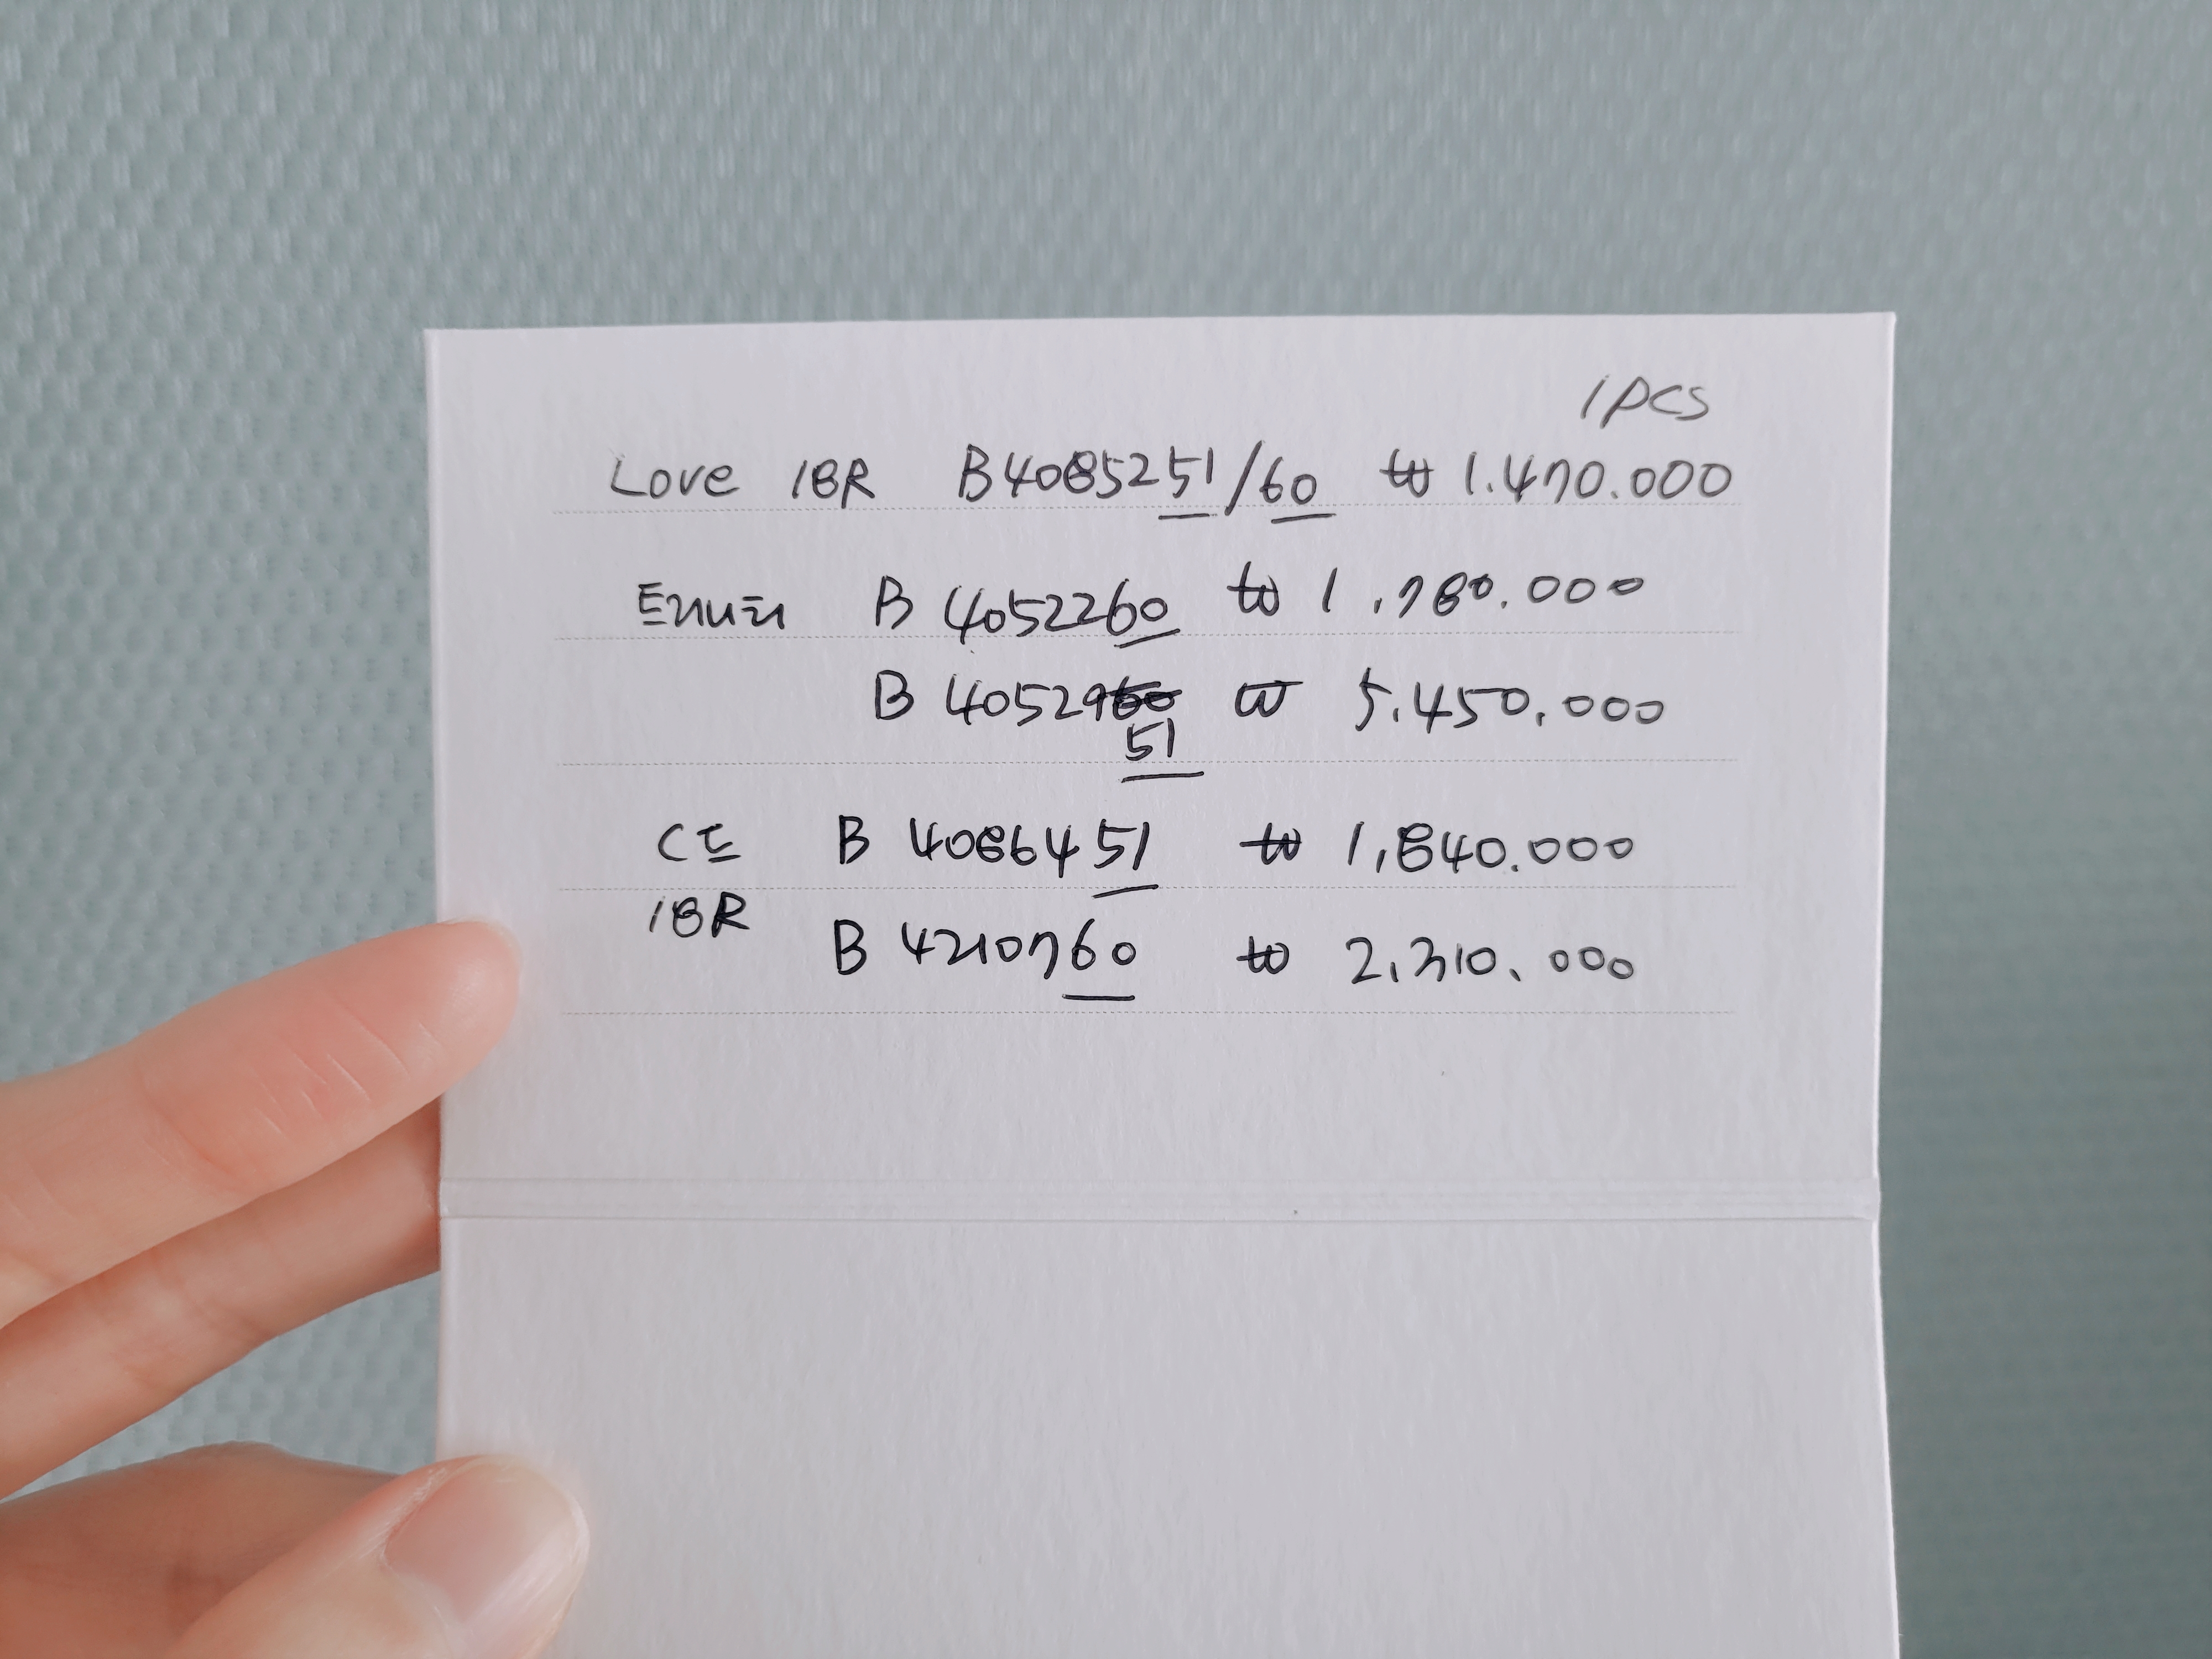 1PCS
Love 18R B4085251/60 ₩ 1.470.000
트리니티 B 4052260 ₩ 1,780.000
B 4052960 ₩ 5.450.000
51
CE B 4086451 ₩ 1,840.000
18R
B 4210760 ₩ 2,310.000